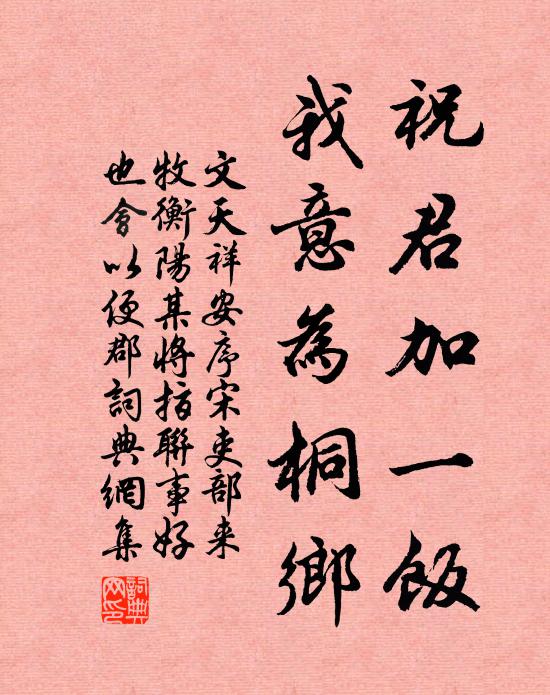 祝君加一飯
我意為桐鄉
文天祥安序宋吏部来
牧衡陽某将指聯事好
也會以便郡詞典網集
詞典